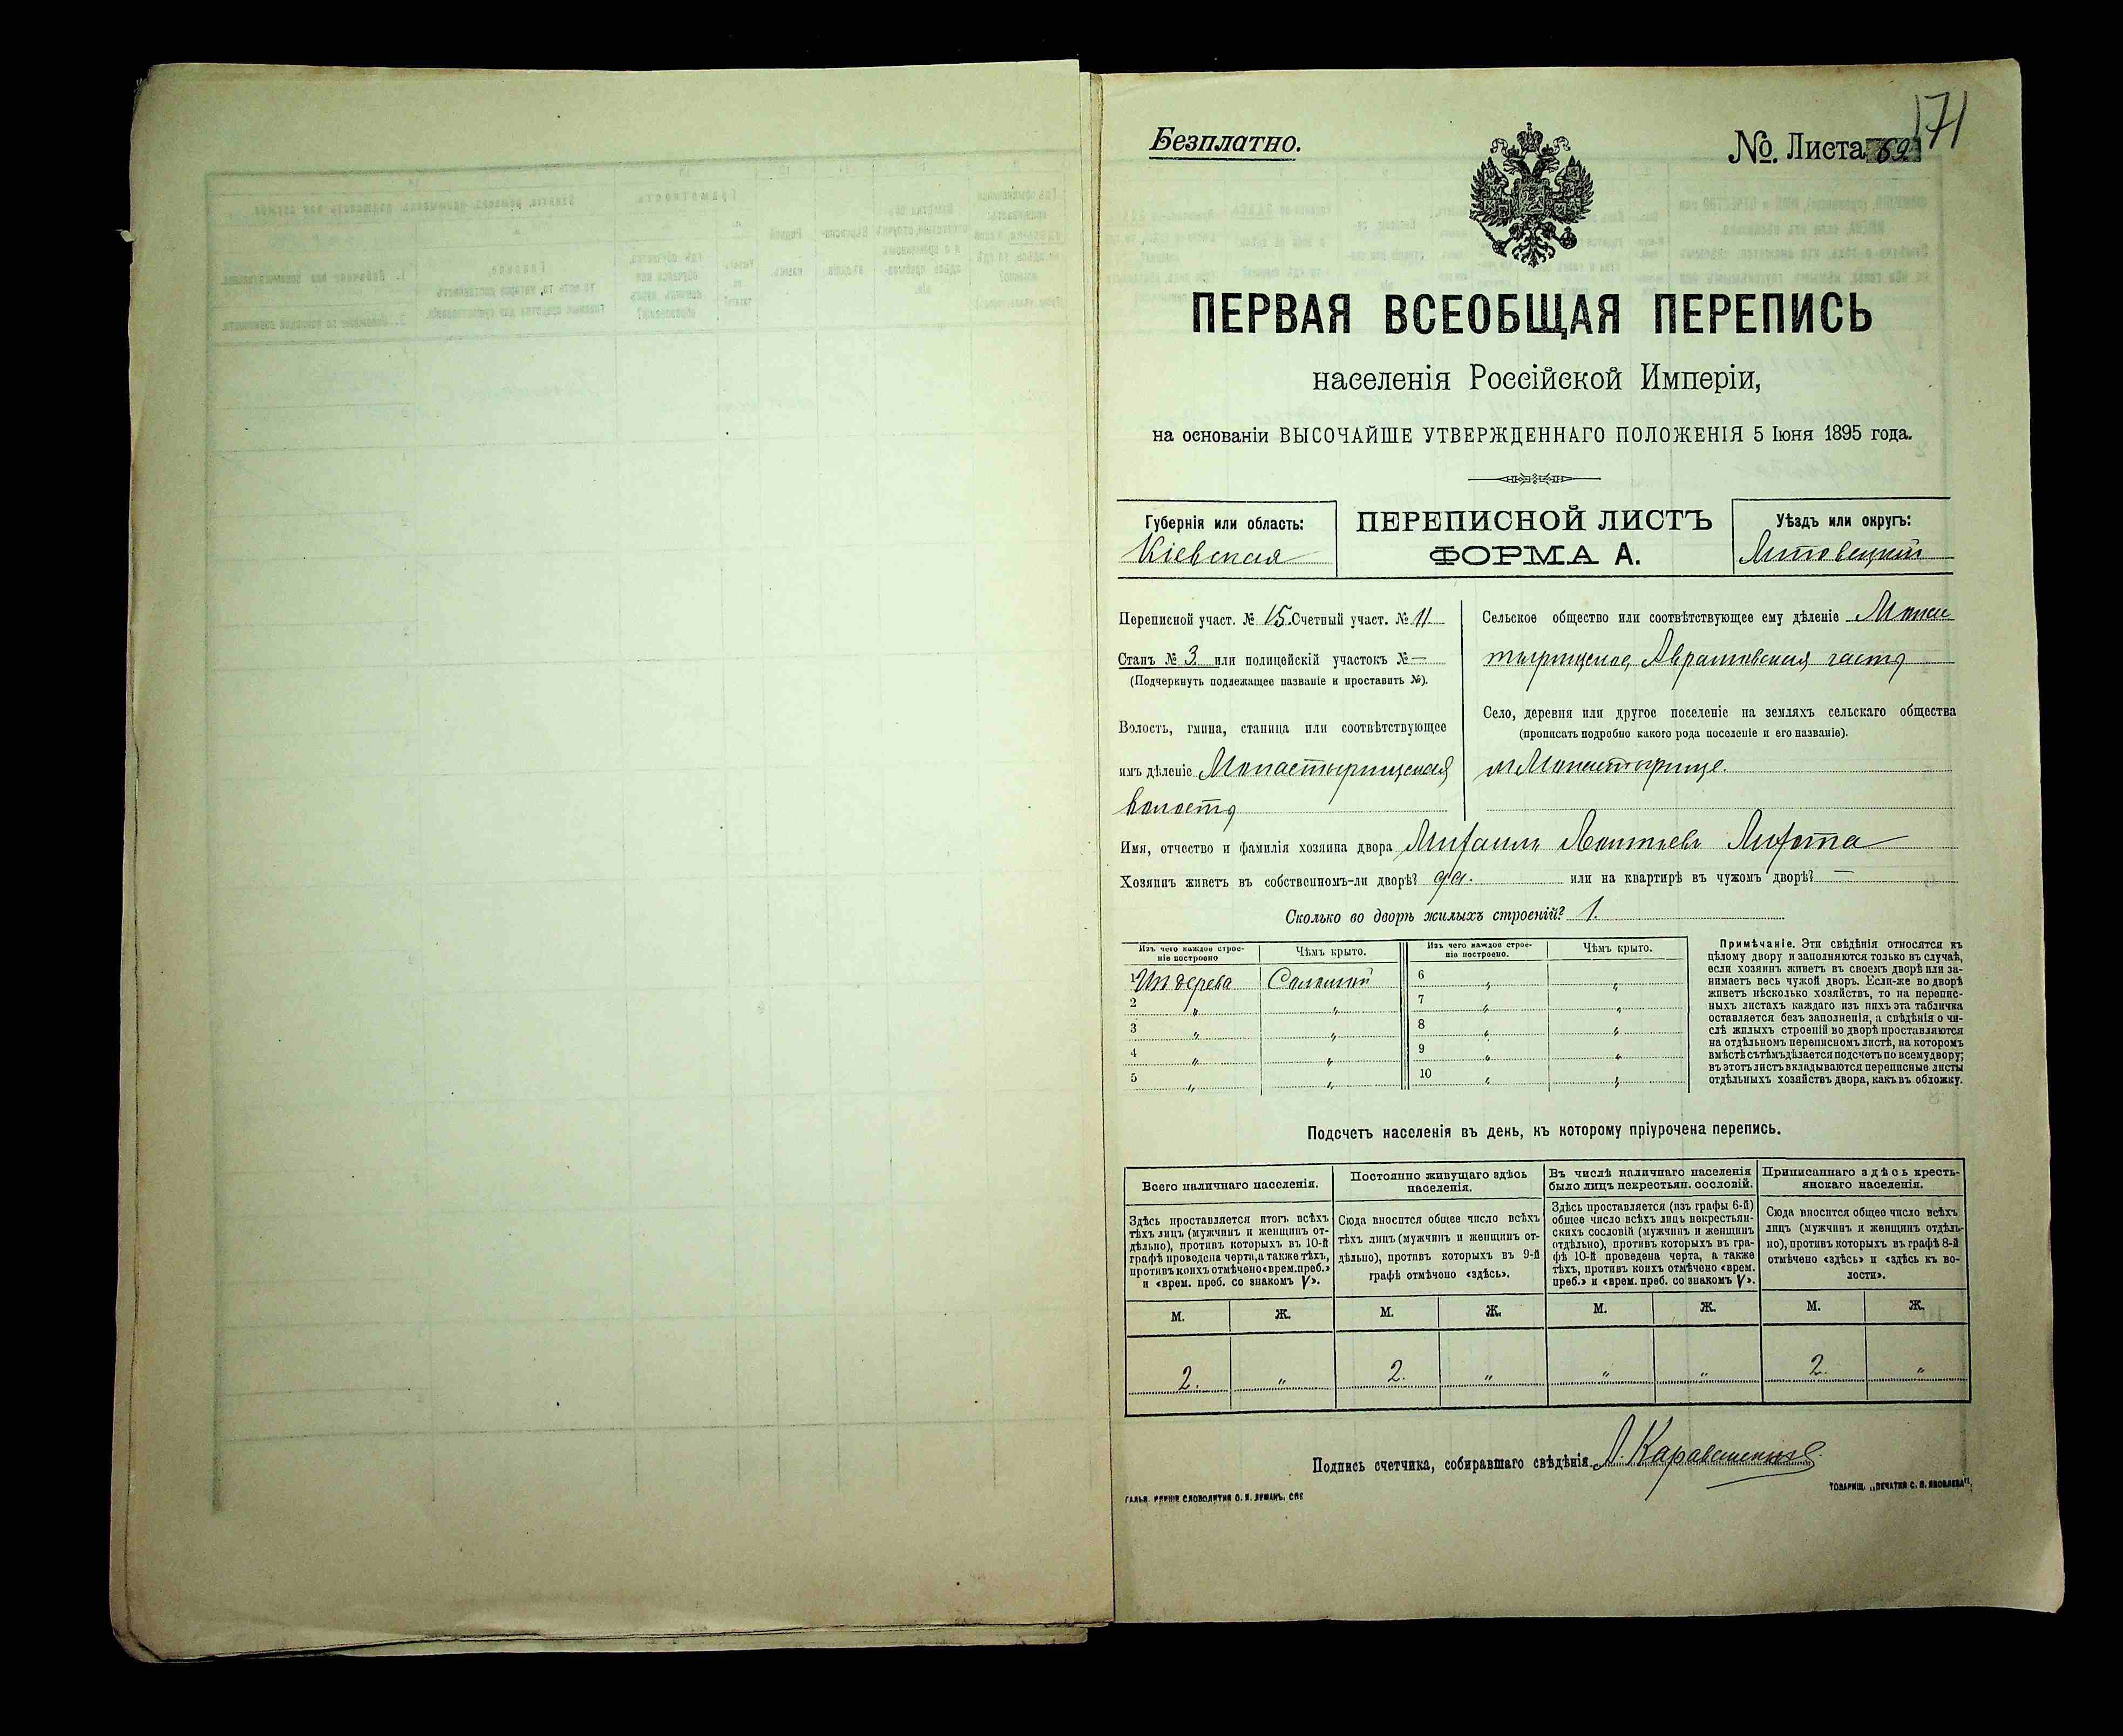 171
Безплатно.
№. Листа 69
ПЕРВАЯ ВСЕОБЩАЯ ПЕРЕПИСЬ
населенія Россійской Имперіи,
на основаніи ВЫСОЧАЙШЕ УТВЕРЖДЕННАГО ПОЛОЖЕНІЯ 5 Іюня 1895 года.
Губернія или область:
Кіевская
ПЕРЕПИСНОЙ ЛИСТЪ
ФОРМА А.
Уѣздъ или округъ:
Липовецкій
Переписной участ. № 15. Счетный участ. № 11
Станъ № 3. или полицейскій участокъ № —
(Подчеркнуть подлежащее названіе и проставить №).
Волость, гмина, станица или соотвѣтствующее
имъ дѣленіе Монастырищская
волость
Сельское общество или соотвѣтствующее ему дѣленіе Монас
тырищское, Аврамовская часть
Село, деревня или другое поселеніе на земляхъ сельскаго общества
(прописать подробно какого рода поселеніе и его названіе).
м Монастырище.
Имя, отчество и фамилія хозяина двора Михаилъ Леонтіевъ Лихота
Хозяинъ живетъ въ собственномъ-ли дворѣ? да. или на квартирѣ въ чужомъ дворѣ? —
Сколько во дворѣ жилыхъ строеній? 1.
Изъ чего каждое строе-
ніе построено
Чѣмъ крыто.
Изъ чего каждое строе-
ніе построено.
Чѣмъ крыто.
1 Изъ дерева Соломой 6 „ „
2 „ „ 7 „ „
3 „ „ 8 „ „
4 „ „ 9 „ „
5 „ „ 10 „ „
Примѣчаніе. Эти свѣдѣнія относятся къ
цѣлому двору и заполняются только въ случаѣ,
если хозяинъ живетъ въ своемъ дворѣ или за-
нимаетъ весь чужой дворъ. Если-же во дворѣ
живетъ нѣсколько хозяйствъ, то на перепис-
ныхъ листахъ каждаго изъ нихъ эта табличка
оставляется безъ заполненія, а свѣдѣнія о чи-
слѣ жилыхъ строеній во дворѣ проставляются
на отдѣльномъ переписномъ листѣ, на которомъ
вмѣстѣ съ тѣмъ дѣлается подсчетъ по всему двору;
въ этотъ листъ вкладываются переписные листы
отдѣльныхъ хозяйствъ двора, какъ въ обложку.
Подсчетъ населенія въ день, къ которому пріурочена перепись.
Всего наличнаго населенія.
Постоянно живущаго здѣсь
населенія.
Въ числѣ наличнаго населенія
было лицъ некрестьян. сословій.
Приписаннаго здѣсь кресть-
янскаго населенія.
Здѣсь проставляется итогъ всѣхъ
тѣхъ лицъ (мужчинъ и женщинъ от-
дѣльно), противъ которыхъ въ 10-й
графѣ проведена черта, а также тѣхъ,
противъ коихъ отмѣчено «врем. преб.»
и «врем. преб. со знакомъ V».
Сюда вносится общее число всѣхъ
тѣхъ лицъ (мужчинъ и женщинъ от-
дѣльно), противъ которыхъ въ 9-й
графѣ отмѣчено «здѣсь».
Здѣсь проставляется (изъ графы 6-й)
общее число всѣхъ лицъ некрестьян-
скихъ сословій (мужчинъ и женщинъ
отдѣльно), противъ которыхъ въ гра-
фѣ 10-й проведена черта, а также
тѣхъ, противъ коихъ отмѣчено «врем.
преб.» и «врем. преб. со знакомъ V».
Сюда вносится общее число всѣхъ
лицъ (мужчинъ и женщинъ отдѣль-
но), противъ которыхъ въ графѣ 8-й
отмѣчено «здѣсь» и «здѣсь къ во-
лости».
М. Ж. М. Ж. М. Ж. М. Ж.
2. „ 2. „ „ „ 2. „
Подпись счетчика, собиравшаго свѣдѣнія
СЛОВОЛИТНЯ О. И. ЛЕМАНЪ, СПБ
ТОВАРИЩ. „ПЕЧАТНЯ С. П. ЯКОВЛЕВА“.